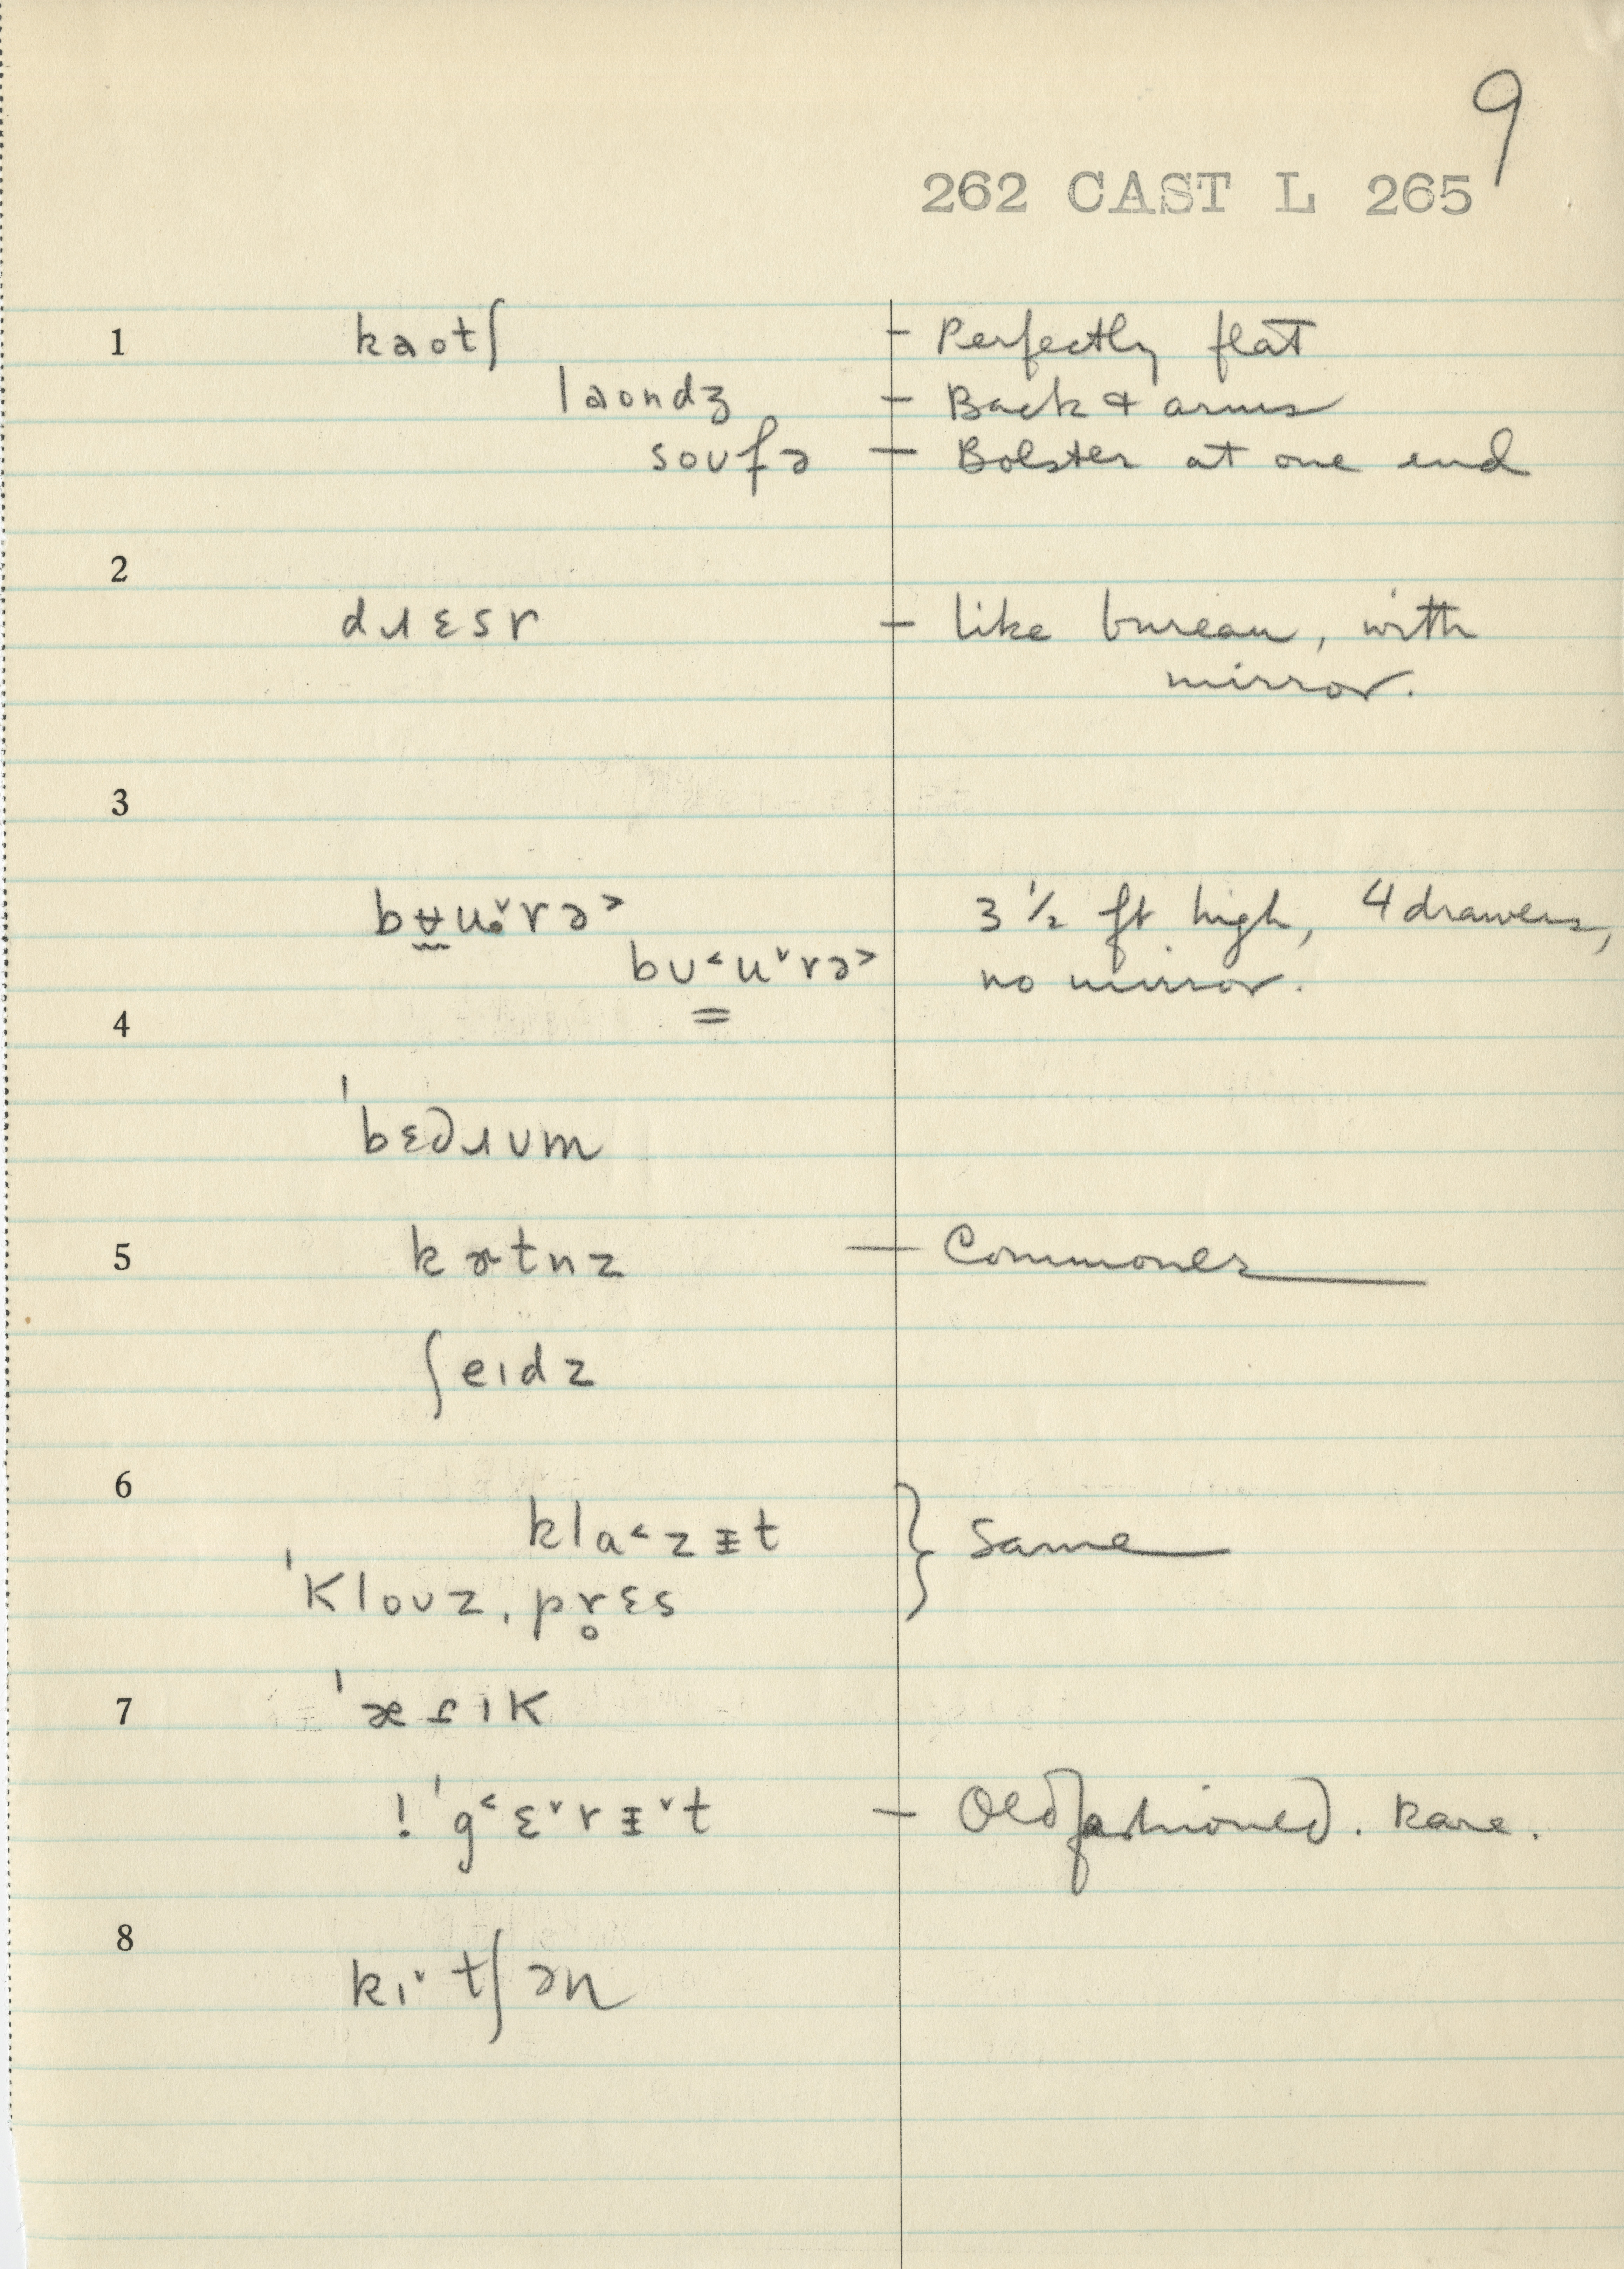 9
262 CAST L 265
1 kaotʃ – Perfectly flat
laondʒ – Back & arms
soʊfə – Bolster at one end
2
dɹɛsɤ – like bureau, with
mirror.
3
bʉ̰u˅rə˃ 3 ½ ft high, 4 drawers,
bʊ˂u˅rə˃ no mirror.
=
4
ˈbɛdɹʊm
5 kɚtnz – Commoner
ʃeɪdz
6
klɑ˂zᵻt } Same
ˈKloʊz,pr̥ɛs
7 ˈæɾɪK
! ˈg˂ɛ˅rᵻ˅t – Oldfashioned. Rare.
8
kɪ˅tʃən